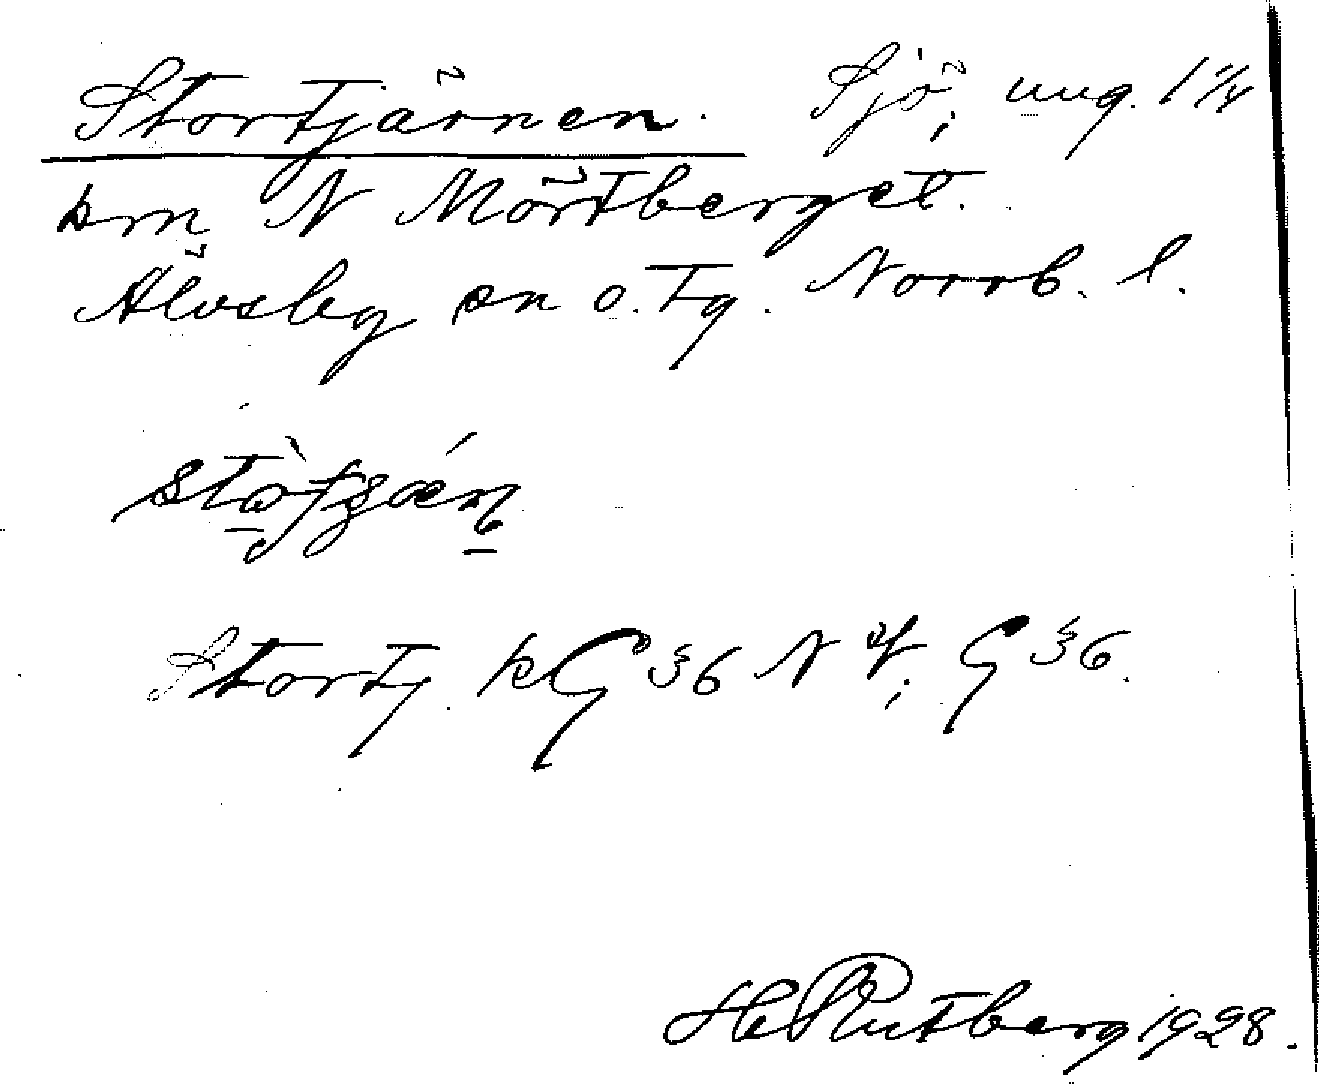 Stortjärnen. Sjö, ung. 1 1/4
km N Mörtberget.
Älvsby sn o. tg. Norrb. l.
Stortj. kG 36 N 4; G 36.
H Rutberg 1928.